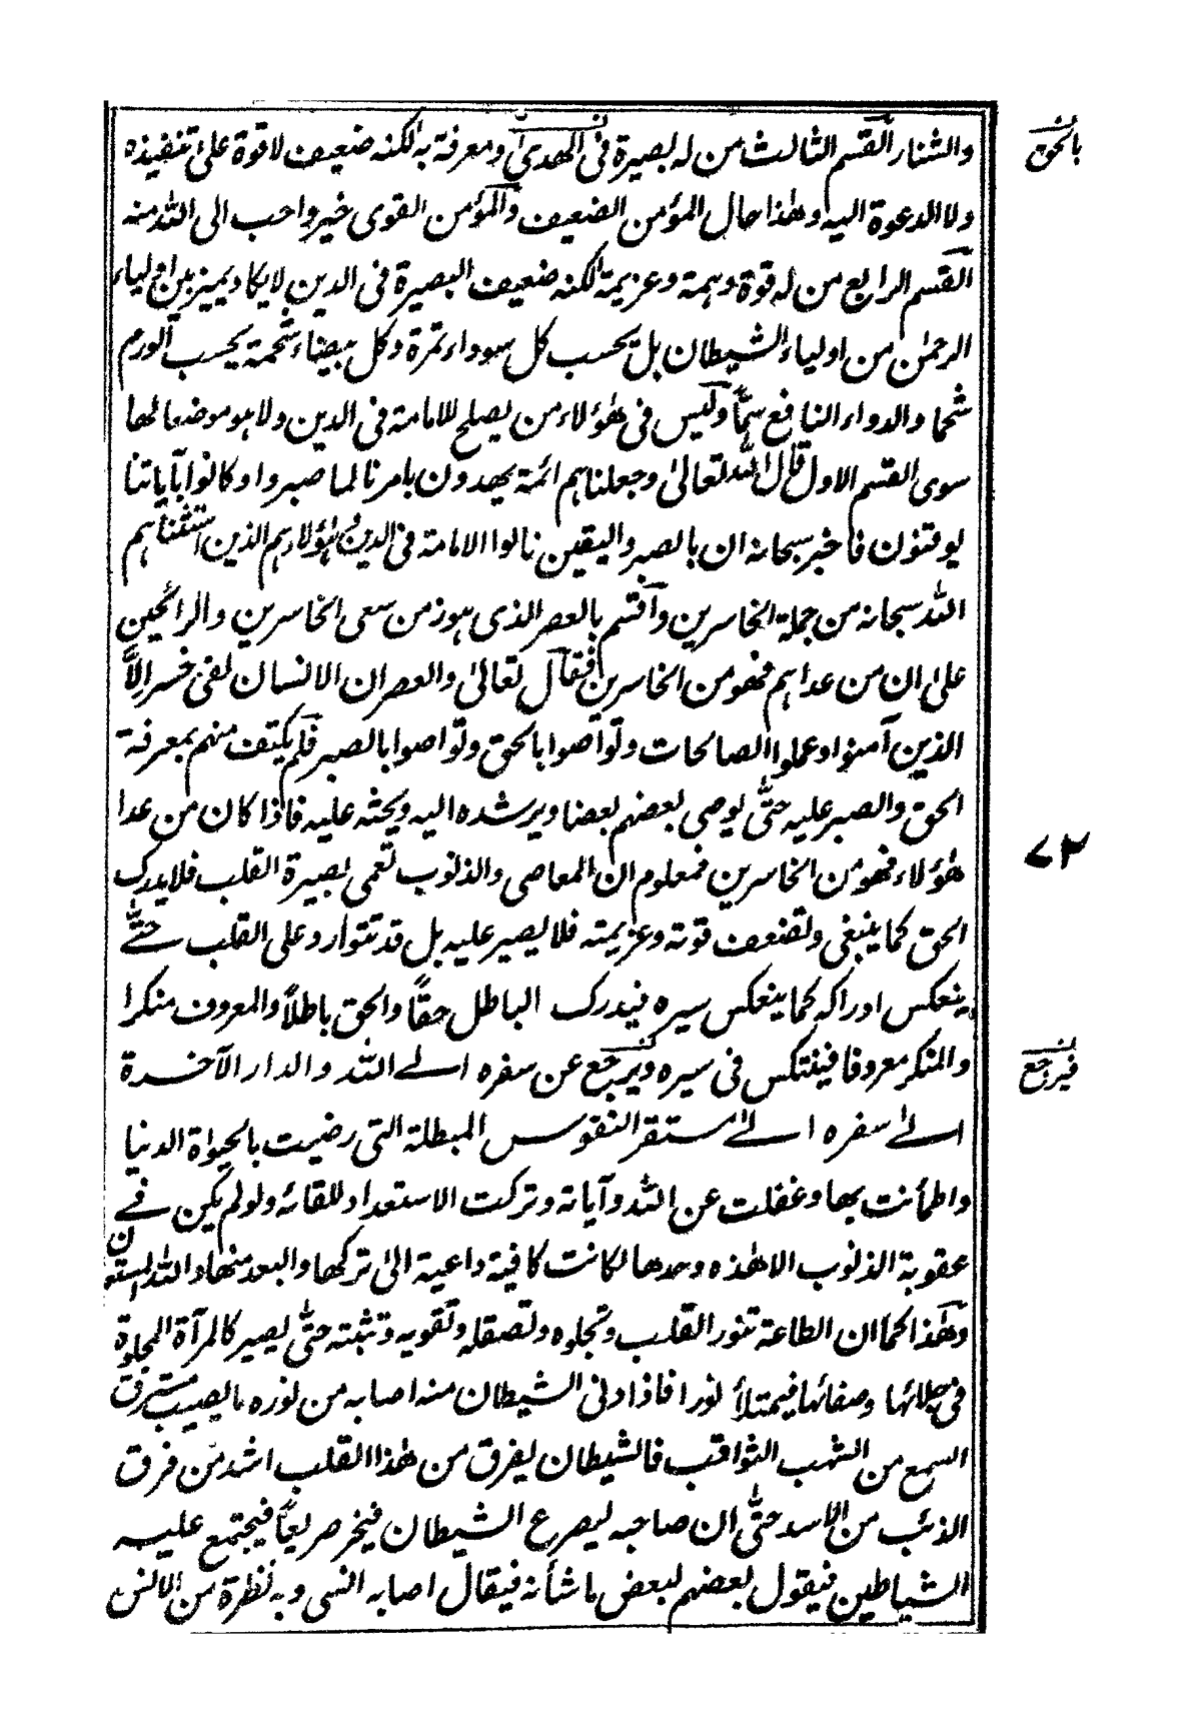 والشنار القسم الثالث من له بصيرة فى الهدى ومعرفة به لكنه ضعيف لا قوة على تنفيذه
بالحق
ولا الدعوة اليه وهذا حال المؤمن الضعيف والمؤمن القوى خير واحب الى الله منه
القسم الرابع من له قوة وهمة وعزيمة لكنه ضعيف البصيرة فى الدين لا يكاد يميز بين اولياء
الرحمن من اولياء الشيطان بل يحسب كل سوداء تمرة وكل بيضاء شحمة يحسب الورم
شحما والدواء النافع سمّا وليس فى هؤلاء من يصلح للامامة فى الدين ولا هو موضعا لها
سوى القسم الاول قال الله تعالى وجعلناهم ائمة يهدون بامرنا لما صبروا وكانوا بآياتنا
يوقنون فاخبر سبحانه ان بالصبر واليقين نالوا الامامة فى الدين هؤلاء هم الذين استثناهم
الله سبحانه من جملة الخاسرين واقسم بالعصر الذى هو زمن سعى الخاسرين والرابحين
على ان من عداهم فهو من الخاسرين فقال تعالى والعصر ان الانسان لفى خسر الّا
الذين آمنوا وعملوا الصالحات وتواصوا بالحق وتواصوا بالصبر فلم يكتف منهم بمعرفة
الحق والصبر عليه حتّى يوصى بعضهم بعضا ويرشده اليه ويحثه عليه فاذا كان من عدا
٧٢
هؤلاء فهو من الخاسرين فمعلوم ان المعاصى والذنوب تعمى بصيرة القلب فلا يدرك
الحق كما ينبغى وتضعف قوته وعزيمته فلا يصبر عليه بل قد تتوارد على القلب حتّى
ينعكس ادراكه كما ينعكس سيره فيدرك الباطل حقّا والحق باطلاً والمعروف منكرا
والمنكر معروفا فينتكس فى سيره ويرجع عن سفره الى الله والدار الآخرة
فيرجع
الى سفره الى مستقر النفوس المبطلة التى رضيت بالحيوة الدنيا
واطمأنت بها وغفلت عن الله وآياته وتركت الاستعداد للقائه ولو لم يكن فى
عقوبة الذنوب الا هذه وحدها لكانت كافية داعية الى تركها والبعد منها والله المستعان
وهذا كما ان الطاعة تنور القلب وتجلوه وتصقله وتقويه وتثبته حتّى يصير كالمرآة المجلوة
فى جلائها وصفائها فيمتلأ نورا فاذا دنى الشيطان منه اصابه من نوره ما يصيب مسترق
السمع من الشهب الثواقب فالشيطان يفرق من هذا القلب اشد من فرق
الذئب من الاسد حتّى ان صاحبه ليصرع الشيطان فيخر صريعاً فيجتمع عليه
الشياطين فيقول بعضهم لبعض ما شأنه فيقال اصابه انسى وبه نظرة من الانس